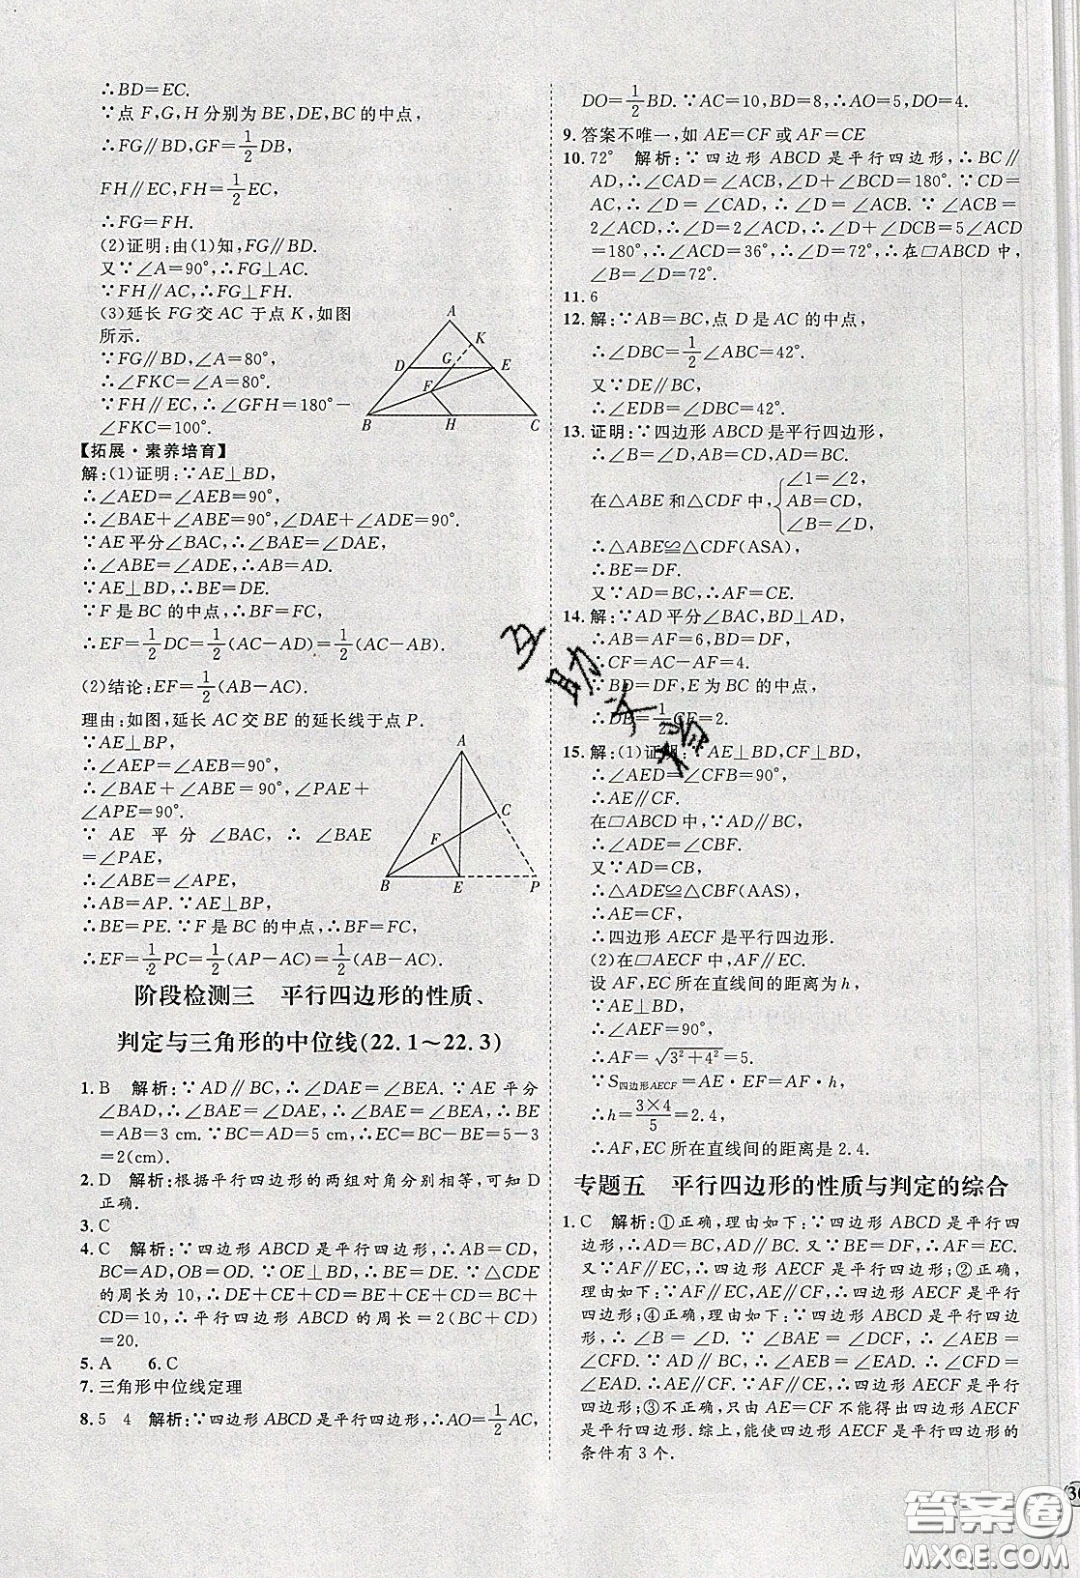 ∴BD=EC.
∵点 F,G,H 分别为 BE,DE,BC 的中点,
∴FG∥BD,GF=1/2DB,
FH∥EC,FH=1/2EC.
∴FG=FH.
(2)证明:由(1)知,FG∥BD.
又∵∠A=90°,∴FG⊥AC.
∵FH∥AC,∴FG⊥FH.
(3)延长 FG 交 AC 于点 K,如图
所示.
∵FG∥BD,∠A=80°,
∴∠FKC=∠A=80°.
∵FH∥EC,∴∠GFH=180°-
∠FKC=100°.
A
K
D
G
E
F
B
H
C
【拓展·素养培育】
解:(1)证明:∵AE⊥BD,
∴∠AED=∠AEB=90°,
∴∠BAE+∠ABE=90°,∠DAE+∠ADE=90°.
∵AE平分∠BAC,∴∠BAE=∠DAE,
∴∠ABE=∠ADE,∴AB=AD.
∵AE⊥BD,∴BE=DE.
∵F 是 BC 的中点,∴BF=FC,
∴EF=1/2DC=1/2(AC-AD)=1/2(AC-AB).
(2)结论:EF=1/2(AB-AC).
理由:如图,延长 AC 交 BE 的延长线于点 P.
∵AE⊥BP,
∴∠AEP=∠AEB=90°,
∴∠BAE+∠ABE=90°,∠PAE+
∠APE=90°.
∵ AE 平分∠BAC,∴∠BAE
=∠PAE,
∴∠ABE=∠APE,
∴AB=AP.∵AE⊥BP,
∴BE=PE.∵F 是 BC 的中点,∴BF=FC,
∴EF=1/2PC=1/2(AP-AC)=1/2(AB-AC).
A
C
F
B
E
P
阶段检测三 平行四边形的性质、
判定与三角形的中位线(22.1～22.3)
1.B 解析:∵AD∥BC,∴∠DAE=∠BEA.∵AE平分
∠BAD,∴∠BAE=∠DAE,∴∠BAE=∠BEA,∴BE
=AB=3 cm.∵BC=AD=5 cm,∴EC=BC-BE=5-3
=2(cm).
2.D 解析:根据平行四边形的两组对角分别相等,可知 D
正确.
3.C
4.C 解析:∵四边形 ABCD 是平行四边形,∴AB=CD,
BC=AD,OB=OD.∵OE⊥BD,∴BE=DE.∵△CDE
的周长为 10,∴DE+CE+CD=BE+CE+CD=BC+
CD=10,∴平行四边形 ABCD 的周长=2(BC+CD)
=20.
5.A 6.C
7.三角形中位线定理
8.5 4 解析:∵四边形 ABCD 是平行四边形,∴AO=1/2AC,
DO=1/2BD.∵AC=10,BD=8,∴AO=5,DO=4.
9.答案不唯一,如 AE=CF 或 AF=CE
10.72° 解析:∵四边形 ABCD 是平行四边形,∴BC∥
AD,∴∠CAD=∠ACB,∠D+∠BCD=180°.∵CD=
AC,∴∠D=∠CAD,∴∠ACB=∠D.∵∠ACB=
2∠ACD,∴∠D=2∠ACD,∴∠D+∠DCB=5∠ACD
=180°,∴∠ACD=36°,∴∠D=72°,∴在▱ABCD 中,
∠B=∠D=72°.
11.6
12.解:∵AB=BC,点 D 是 AC 的中点,
∴∠DBC=1/2∠ABC=42°.
又∵DE∥BC,
∴∠EDB=∠DBC=42°.
13.证明:∵四边形 ABCD 是平行四边形,
∴∠B=∠D,AB=CD,AD=BC.
∠1=∠2,
在△ABE 和△CDF 中,AB=CD,
∠B=∠D,
∴△ABE≌△CDF(ASA),
∴BE=DF.
又∵AD=BC,∴AF=CE.
14.解:∵AD 平分∠BAC,BD⊥AD,
∴AB=AF=6,BD=DF,
∴CF=AC-AF=4.
∵BD=DF,E 为 BC 的中点,
∴DE=1/2CF=2.
15.解:(1)证明:∵AE⊥BD,CF⊥BD,
∴∠AED=∠CFB=90°,
∴AE∥CF.
在▱ABCD 中,∵AD∥BC,
∴∠ADE=∠CBF.
又∵AD=CB,
∴△ADE≌△CBF(AAS),
∴AE=CF,
∴四边形 AECF 是平行四边形.
(2)在▱AECF 中,AF∥EC.
设 AF,EC 所在直线间的距离为 h,
∵AE⊥EF,EF=4,AE=3,
∴AF=√(3²+4²)=5.
∵S四边形AECF=AE·EF=AF·h,
∴h=3×4/5=2.4,
∴AF,EC 所在直线间的距离是 2.4.
专题五 平行四边形的性质与判定的综合
1.C 解析:①正确,理由如下:∵四边形 ABCD 是平行四
边形,∴AD=BC,AD∥BC.又∵BE=DF,∴AF=EC.
又∵AF∥EC,∴四边形 AECF 是平行四边形;②正确,
理由如下:∵AF∥EC,AE∥CF,∴四边形 AECF 是平行
四边形;④正确,理由如下:∵四边形 ABCD 是平行四边
形,∴∠B=∠D.∵∠BAE=∠DCF,∴∠AEB=
∠CFD.∵AD∥BC,∴∠AEB=∠EAD,∴∠CFD=
∠EAD,∴AE∥CF.∵AF∥CE,∴四边形 AECF 是平行
四边形;③不正确,只由 AE=CF 不能得出四边形 AECF
是平行四边形.综上,能使四边形 AECF 是平行四边形的
条件有 3 个.
互助文档
答案圈
MXQE.COM